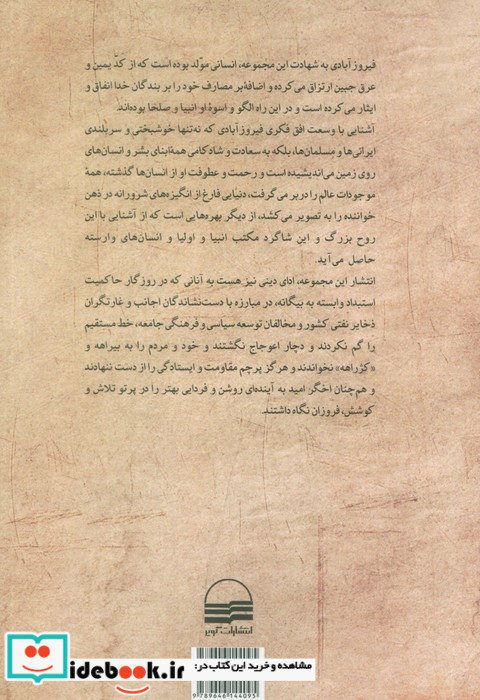 فیروزآبادی به شهادت این مجموعه، انسانی مولّد بوده است که از کدّ یمین و
عرق جبین ارتزاق می‌کرده و اضافه‌بر مصارف خود را بر بندگان خدا انفاق و
ایثار می‌کرده است و در این راه الگو و اسوهٔ او انبیا و صلحا بوده‌اند.
آشنایی با وسعت افق فکری فیروزآبادی که نه‌تنها خوشبختی و سربلندی
ایرانی‌ها و مسلمان‌ها، بلکه به سعادت و شادکامی همهٔ ابنای بشر و انسان‌های
روی زمین می‌اندیشیده است و رحمت و عطوفت او از انسان‌ها گذشته، همهٔ
موجودات عالم را دربر می‌گرفت، دنیایی فارغ از انگیزه‌های شرورانه در ذهن
خواننده را به تصویر می‌کشد، از دیگر بهره‌هایی است که از آشنایی با این
روح بزرگ و این شاگرد مکتب انبیا و اولیا و انسان‌های وارسته
حاصل می‌آید.
انتشار این مجموعه، ادای دینی نیز هست به آنانی که در روزگار حاکمیت
استبداد وابسته به بیگانه، در مبارزه با دست‌نشاندگان اجانب و غارتگران
ذخایر نفتی کشور و مخالفان توسعه سیاسی و فرهنگی جامعه، خط مستقیم
را گم نکردند و دچار اعوجاج نگشتند و خود و مردم را به بیراهه و
«کژراهه» نخواندند و هرگز پرچم مقاومت و ایستادگی را از دست ننهادند
و هم‌چنان اخگر امید به آینده‌ای روشن و فردایی بهتر را در پرتو تلاش و
کوشش، فروزان نگاه داشتند.
انتشارات کویر
idebook.ir
مشاهده و خرید این کتاب در:
9 789646 144095